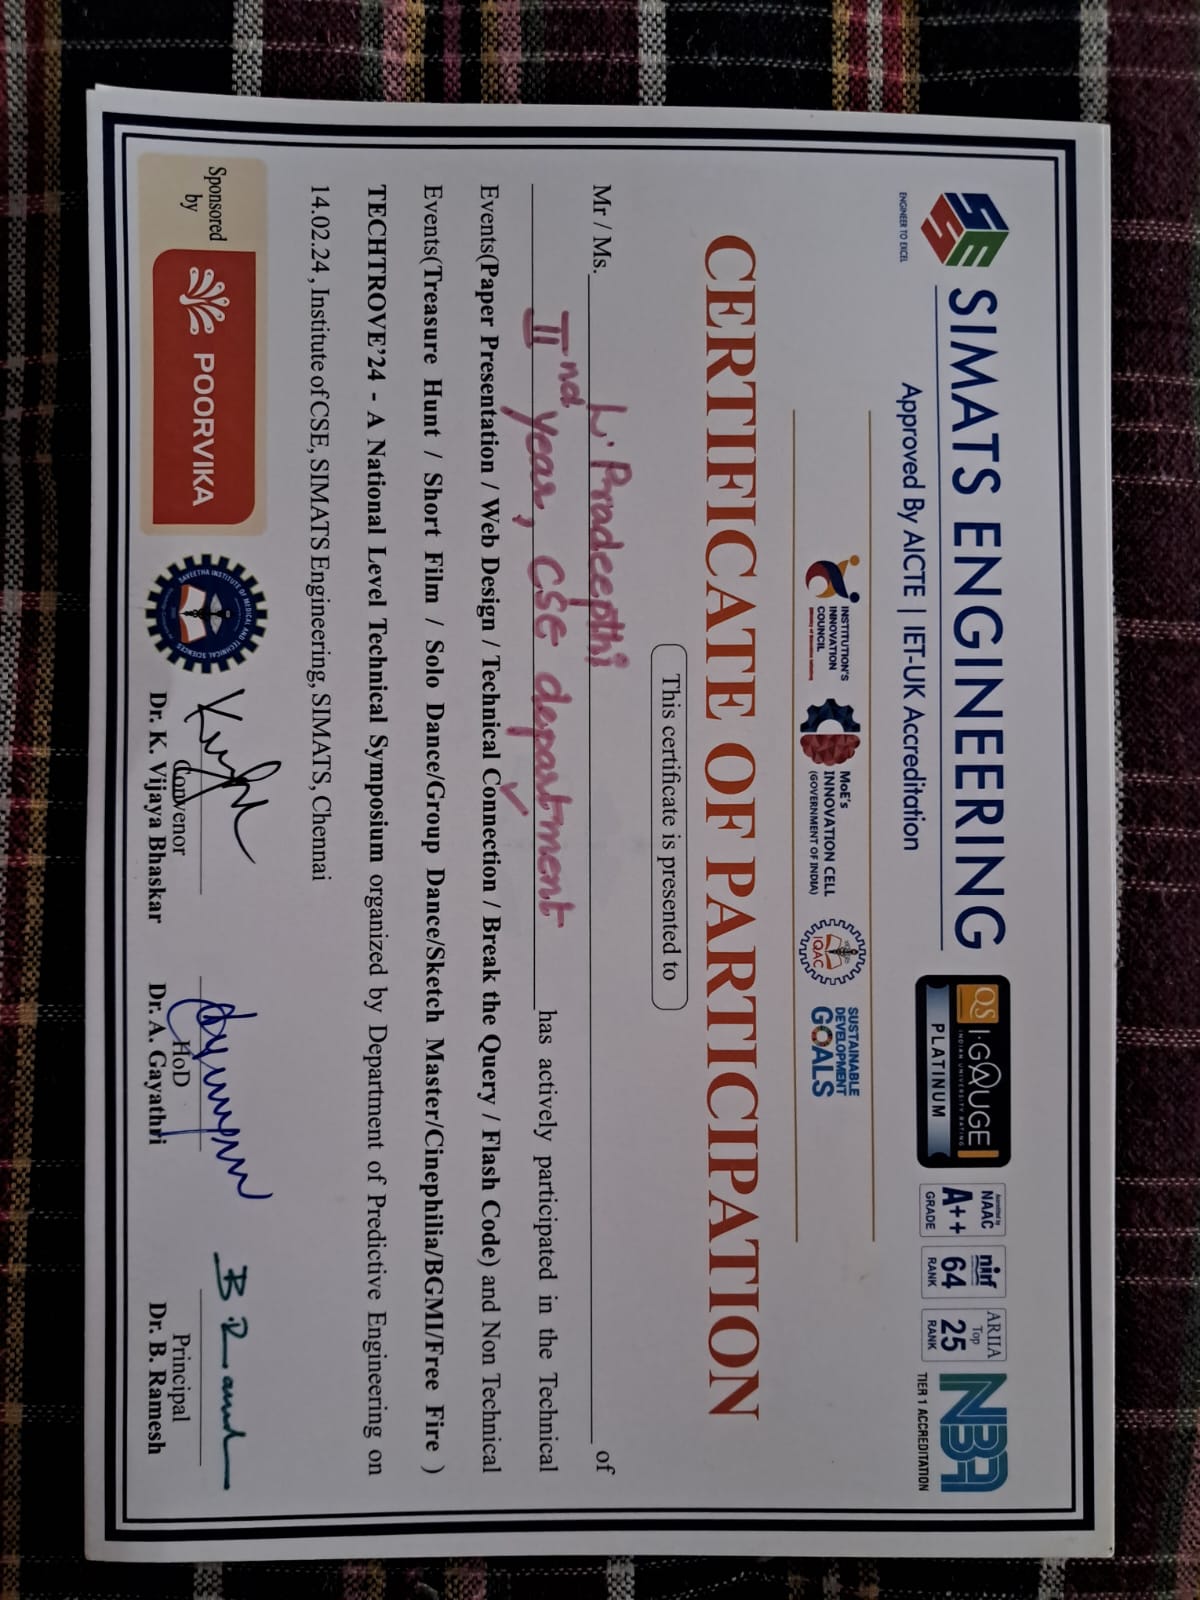 SIMATS ENGINEERING
Approved By AICTE | IET-UK Accreditation
ENGINEER TO EXCEL
QS I·GAUGE
INDIAN UNIVERSITY RATING
PLATINUM
Accredited by
NAAC
A++
GRADE
nirf
64
RANK
ARIIA
Top
25
RANK
NBA
TIER 1 ACCREDITATION
INSTITUTION'S
INNOVATION
COUNCIL
(Ministry of Education Initiative)
MoE's
INNOVATION CELL
(GOVERNMENT OF INDIA)
IQAC
SUSTAINABLE
DEVELOPMENT
GOALS
CERTIFICATE OF PARTICIPATION
This certificate is presented to
Mr / Ms. L. Pradeepthi of
IInd year, CSE department has actively participated in the Technical
Events(Paper Presentation / Web Design / Technical Connection / Break the Query / Flash Code) and Non Technical
Events(Treasure Hunt / Short Film / Solo Dance/Group Dance/Sketch Master/Cinephilia/BGMI/Free Fire )
TECHTROVE’24 - A National Level Technical Symposium organized by Department of Predictive Engineering on
14.02.24 , Institute of CSE, SIMATS Engineering, SIMATS, Chennai
Sponsored
by
POORVIKA
SAVEETHA INSTITUTE OF MEDICAL AND TECHNICAL SCIENCES
B. Ramesh
Convenor
Dr. K. Vijaya Bhaskar
HoD
Dr. A. Gayathri
Principal
Dr. B. Ramesh